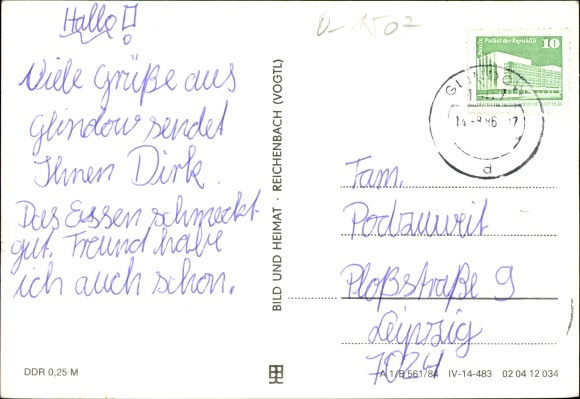 Hallo!
Viele Grüße aus
Glindow sendet
Ihnen Dirk.
Das Essen schmeckt
gut. Freund habe
ich auch schon.
DDR 0,25 M
BILD UND HEIMAT · REICHENBACH (VOGTL)
0-1502
Palast der Republik
10
GLINDOW
14.-8.86
d
Fam.
Podzuweit
Ploßstraße 9
Leipzig
7024
A 1/B 561/84 IV-14-483 02 04 12 034